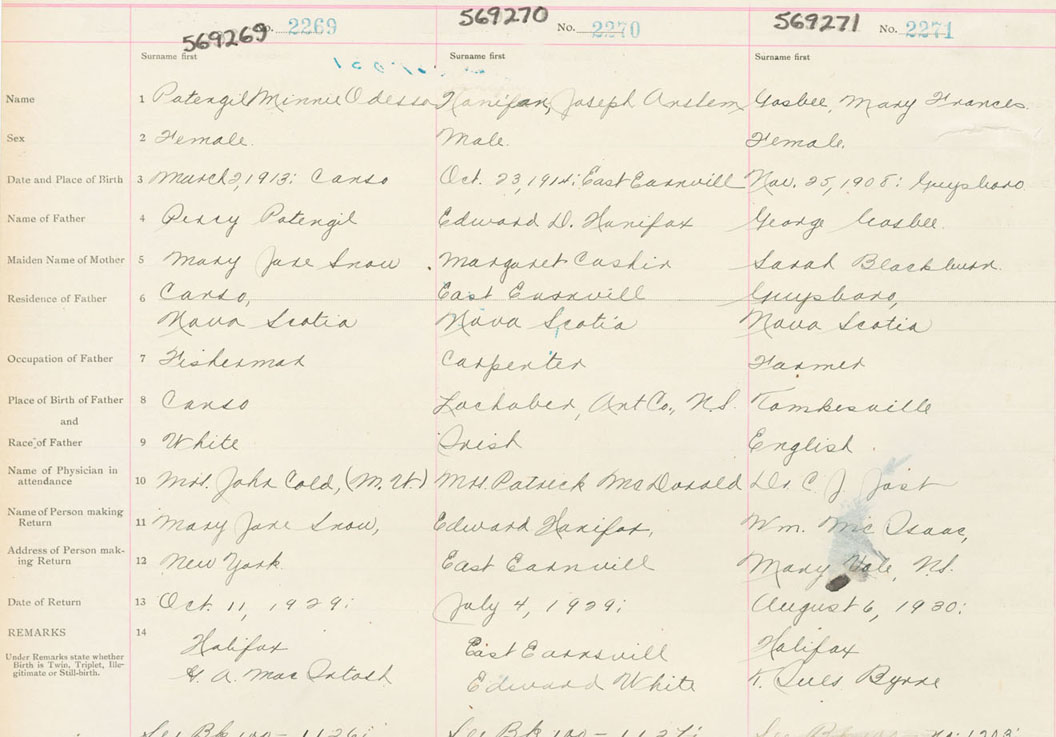 569269 No. 2269 569270 No. 2270 569271 No. 2271
Surname first Surname first Surname first
Name 1 Patengil Minnie Odessa Hanifan, Joseph Anslem Gosbee, Mary Frances.
Sex 2 Female. Male. Female.
Date and Place of Birth 3 March 2, 1913: Canso Oct. 23, 1914: East Earnvill Nov. 25, 1908: Guysboro
Name of Father 4 Percy Patengil Edward D. Hanifax George Gosbee.
Maiden Name of Mother 5 Mary Jane Snow Margaret Cashin Sarah Blackburn.
Residence of Father 6 Canso, East Earnvill Guysboro,
Nova Scotia Nova Scotia Nova Scotia
Occupation of Father 7 Fisherman Carpenter Farmer
Place of Birth of Father 8 Canso Lochaber, Ant Co., N.S. Tomkesville
and
Race of Father 9 White Irish English
Name of Physician in
attendance 10 Mrs. John Cold, (M.W.) Mrs. Patrick McDonald Dr. C. J. Jost
Name of Person making
Return 11 Mary Jane Snow, Edward Hanifax, Wm. Mc Isaac,
Address of Person mak-
ing Return 12 New York. East Earnvill Mary Vale, N.S.
Date of Return 13 Oct. 11, 1929: July 4, 1929: August 6, 1930:
REMARKS 14 Halifax East Earnsvill Halifax
Under Remarks state whether
Birth is Twin, Triplet, Ille-
gitimate or Still-birth. Mac Intosh Edward White Byrne
See Bk 100 - See Bk 100 -